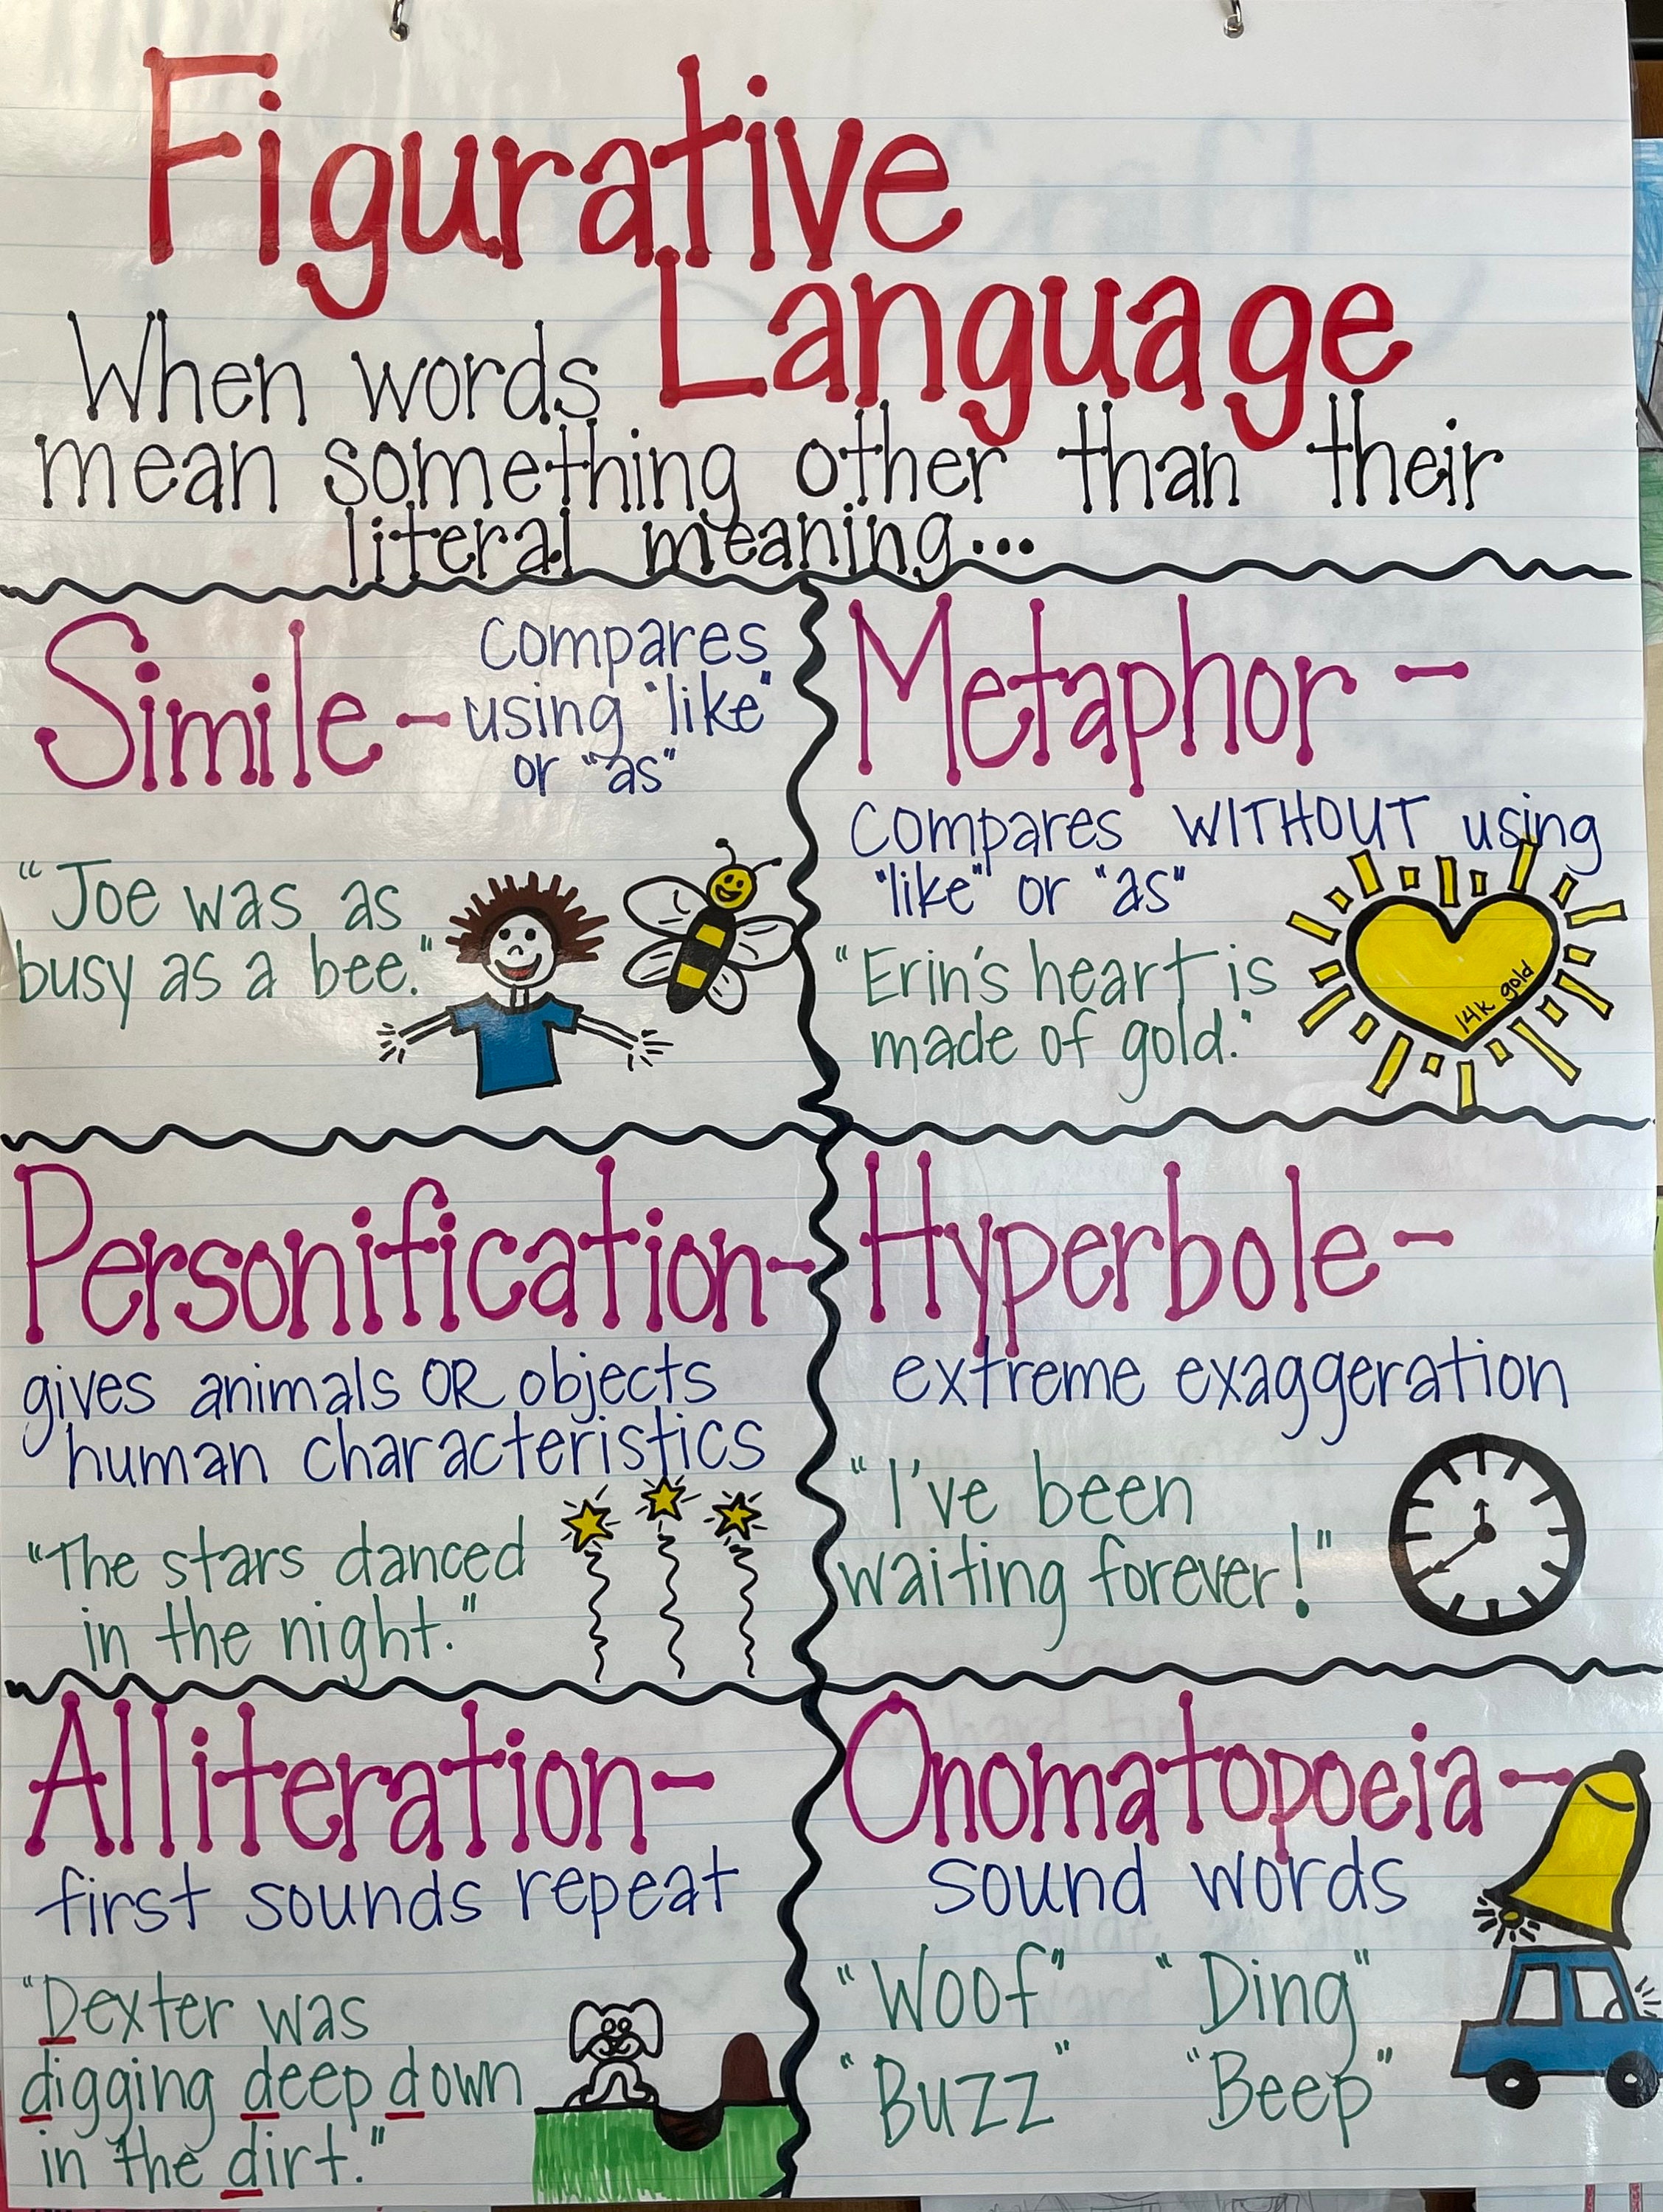 Figurative
Language
When words
mean something other than their
literal meaning...
Simile -
compares
using "like"
or "as"
"Joe was as
busy as a bee."
Metaphor -
compares WITHOUT using
"like" or "as"
"Erin's heart is
made of gold."
14k gold
Personification-
gives animals OR objects
human characteristics
"The stars danced
in the night."
Hyperbole -
extreme exaggeration
"I've been
waiting forever!"
Alliteration-
first sounds repeat
"Dexter was
digging deep down
in the dirt."
Onomatopoeia-
sound words
"Woof" "Ding"
"Buzz" "Beep"